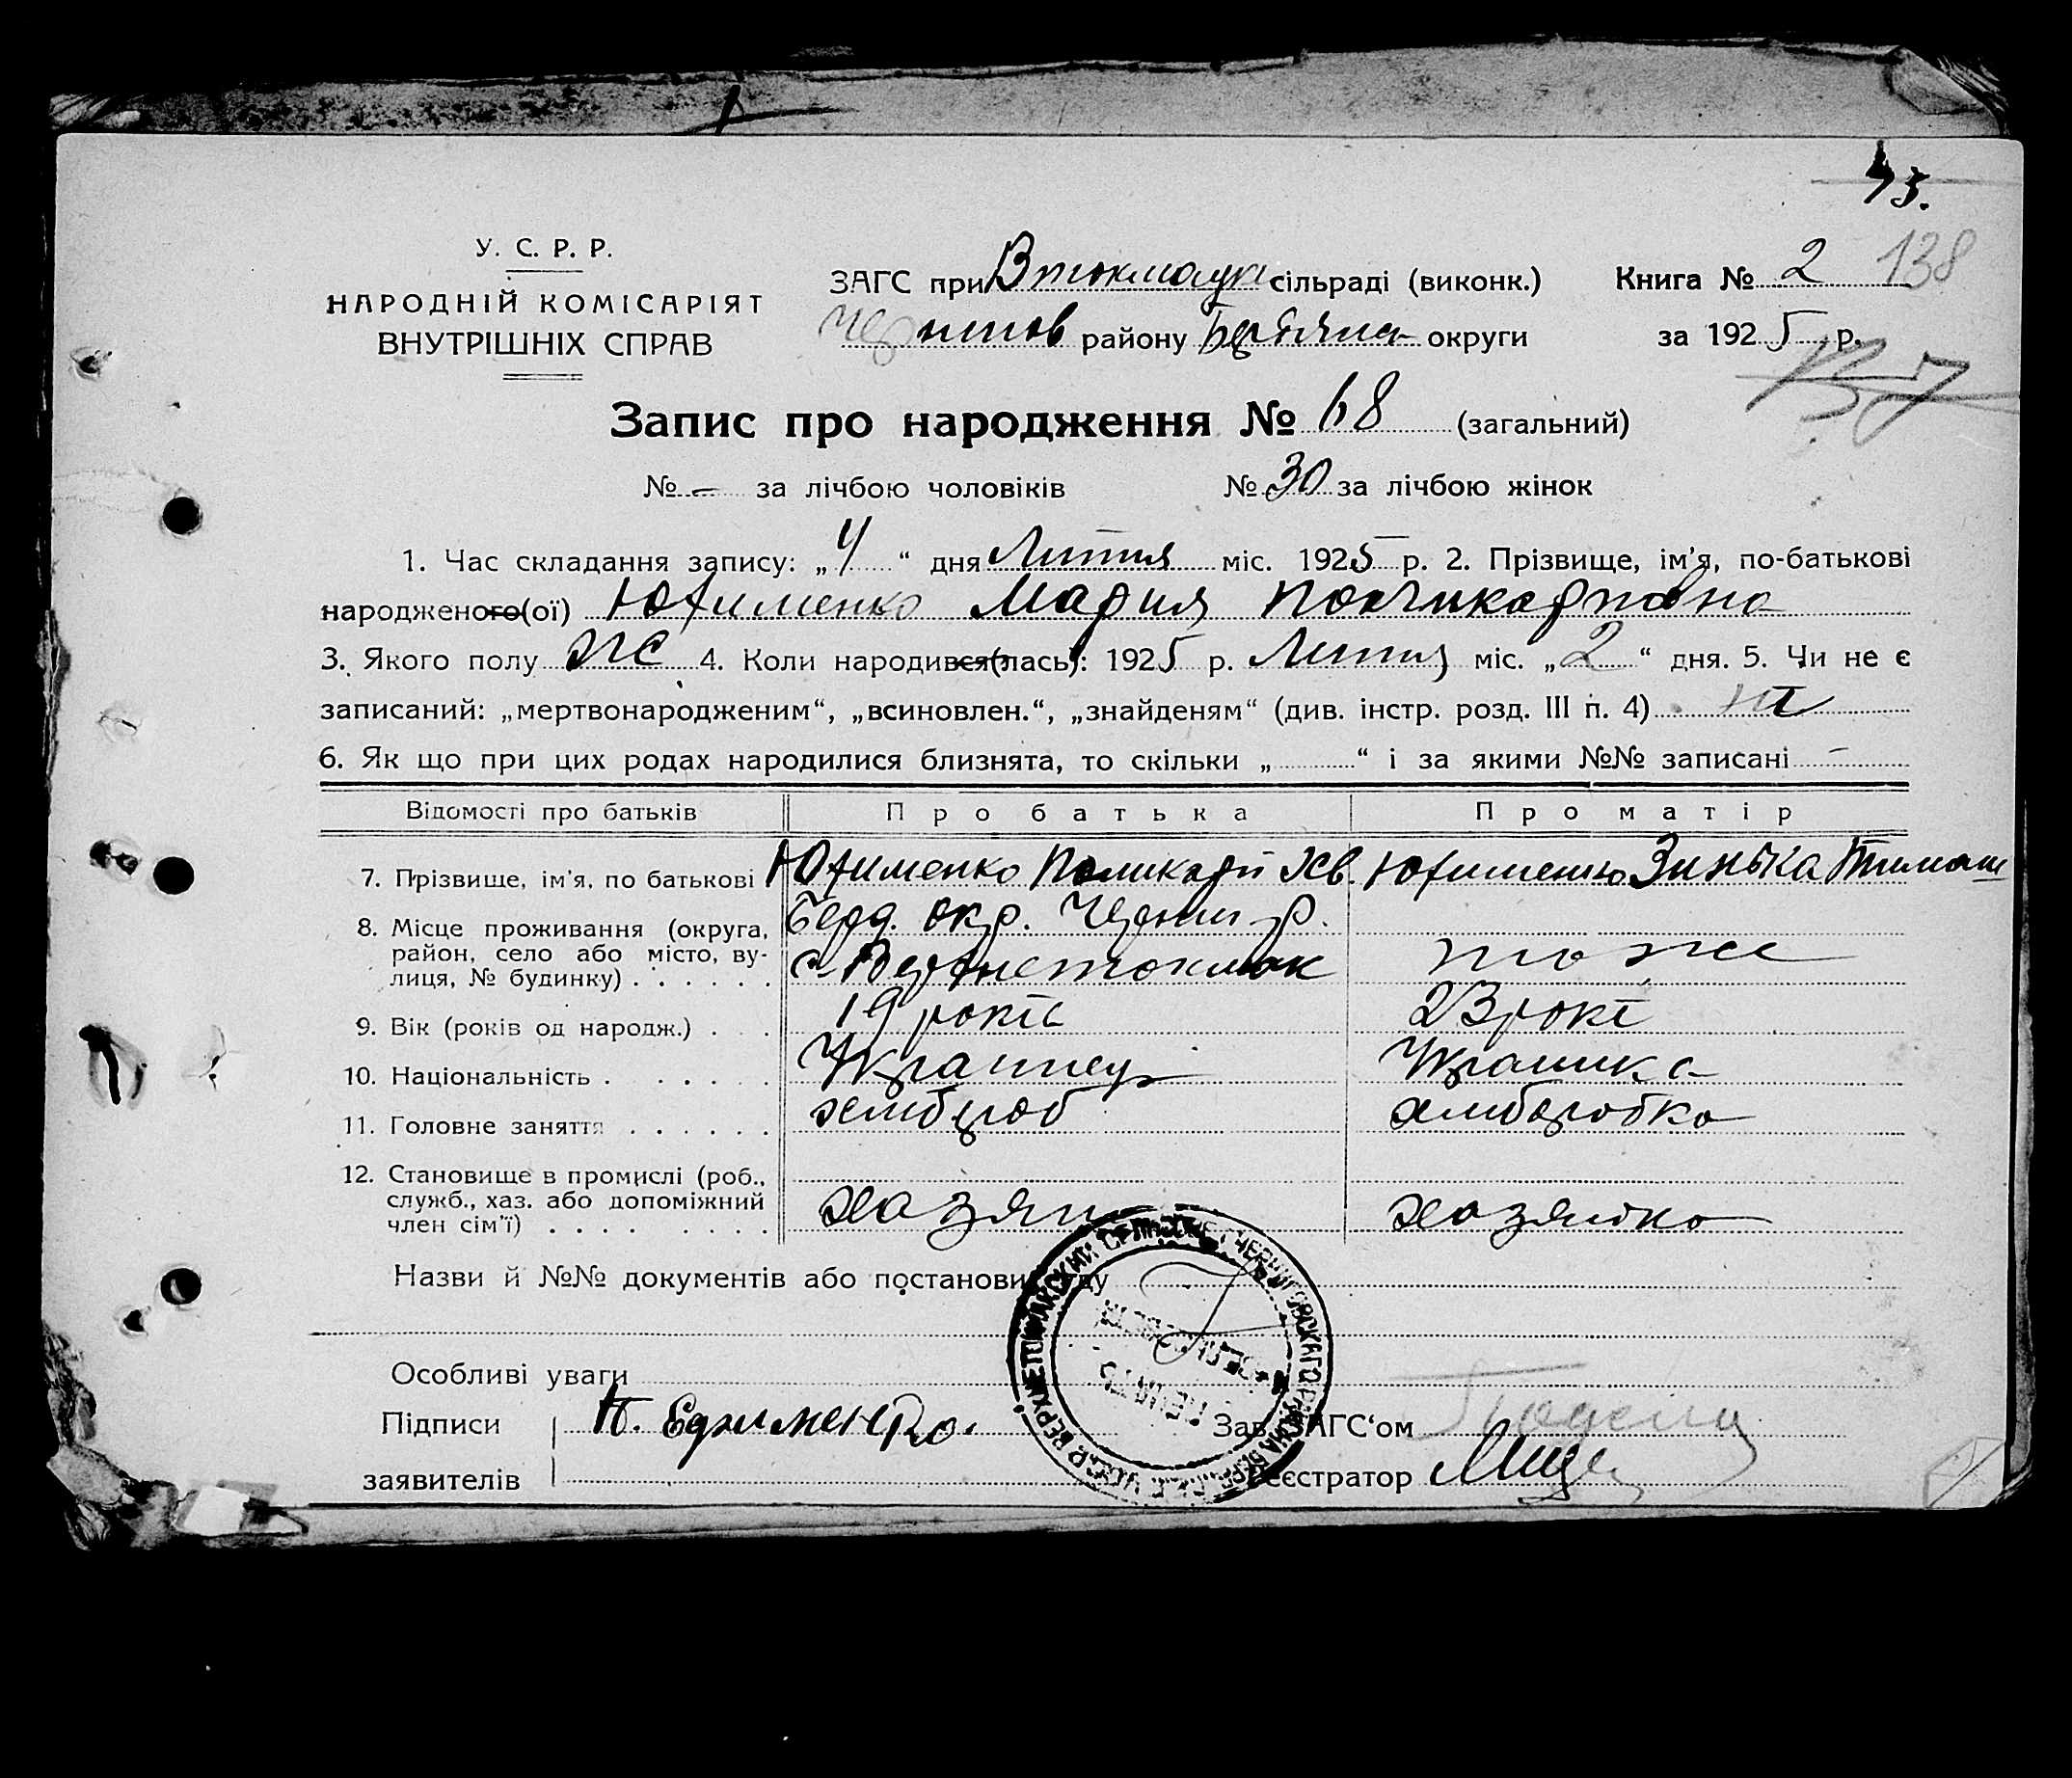 43.
У. С. Р. Р.
НАРОДНІЙ КОМІСАРІЯТ
ВНУТРІШНІХ СПРАВ
ЗАГС при Втокмацкі сільраді (виконк.)
Книга № 2 138
Черниг­ов району Бердянс округи
за 1925 р.
Запис про народження № 68 (загальний)
№ – за лічбою чоловіків № 30 за лічбою жінок
1. Час складання запису: „4“ дня Липня міс. 1925 р. 2. Прізвище, ім'я, по-батькові
народженого(ої) Юхименко Мария Поликарповна
3. Якого полу ж 4. Коли народився(лась): 1925 р. Липня міс. „2“ дня. 5. Чи не є
записаний: „мертвонародженим“, „всиновлен.“, „знайденям“ (див. інстр. розд. III п. 4) ні
6. Як що при цих родах народилися близнята, то скільки „ “ і за якими №№ записані –
Відомості про батьків Про батька Про матір
7. Прізвище, ім'я, по батькові Юхименко Поликарп Хв. Юхименко Зинька Тимош
8. Місце проживання (округа, район, село або місто, вулиця, № будинку) . . . . . .
Берд. окр. Черниг р.
с. Верхнетокмак тоже
9. Вік (років од народж.) . . 19 років 23 рокі
10. Національність . . . . . . Украинец Украинка
11. Головне заняття . . . . . . хлибороб хлиборобка
12. Становище в промислі (роб., служб., хаз. або допоміжний член сім'ї) . . . . . . . . хазяин хазяйка
Назви й №№ документів або постанови суду
Особливі уваги
Підписи П. Ефименко.
Зав. ЗАГС'ом
заявителів
Реєстратор
У.С.С.Р. ВЕРХНЕТОКМАКСКИЙ СЕЛЬ ЧЕРНИГОВСКАГО РАЙОНА